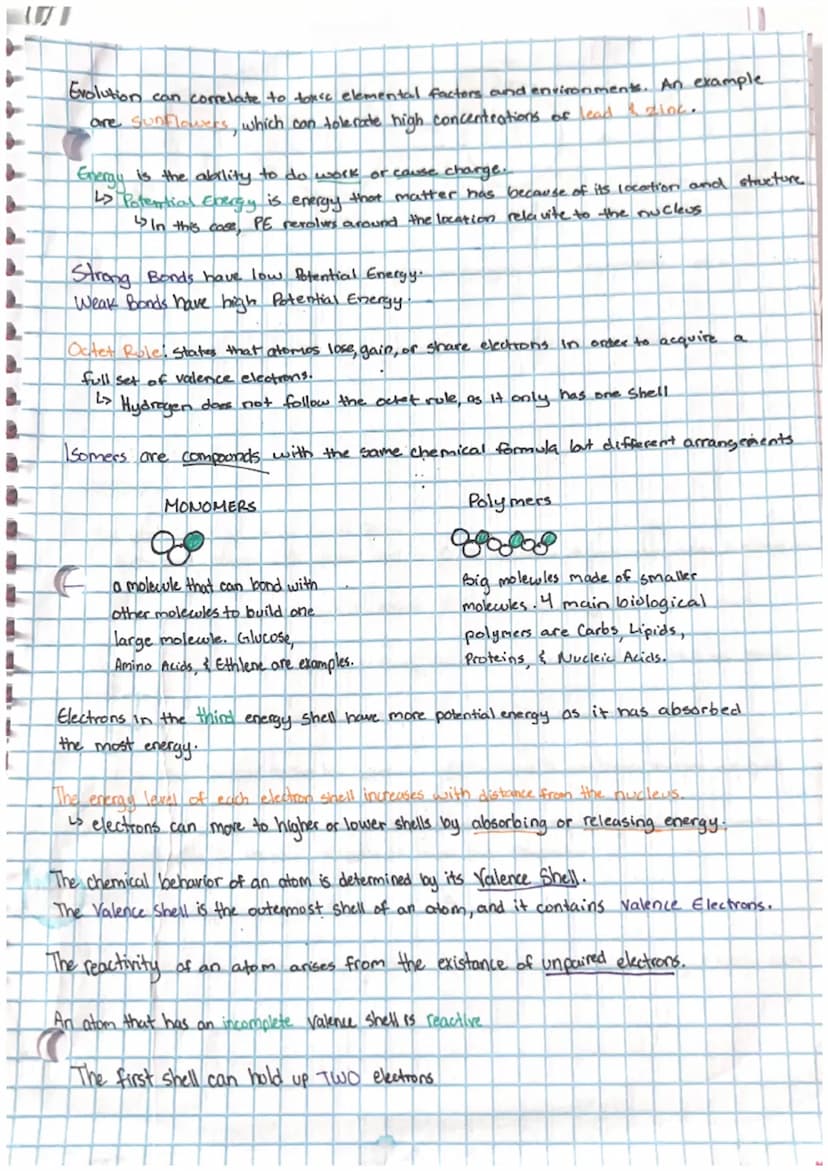 Evolution can correlate to toxic elemental factors and environments. An example
are sunflowers, which can tolerate high concentrations of lead & zinc.
Energy is the ability to do work or cause charge.
↳ Potential Energy is energy that matter has because of its location and structure
↳ In this case, PE revolves around the location relavite to the nucleus
Strong Bonds have low Potential Energy.
Weak Bonds have high Potential Energy.
Octet Rule: States that atomos lose, gain, or share electrons in order to acquire a
full set of valence electrons.
↳ Hydrogen does not follow the octet rule, as it only has one shell
Isomers are compounds with the same chemical formula but different arrangements
MONOMERS
a molecule that can bond with
other molecules to build one
large molecule. Glucose,
Amino Acids, & Ethlene are examples.
Polymers
Big molecules made of smaller
molecules. 4 main biological
polymers are Carbs, Lipids,
Proteins, & Nucleic Acids.
Electrons in the third energy shell have more potential energy as it has absorbed
the most energy.
The energy level of each electron shell increases with distance from the nucleus.
↳ electrons can move to higher or lower shells by absorbing or releasing energy.
The chemical behavior of an atom is determined by its Valence Shell.
The Valence Shell is the outermost shell of an atom, and it contains Valence Electrons.
The reactivity of an atom arises from the existance of unpaired electrons.
An atom that has an incomplete valence shell is reactive
The first shell can hold up TWO electrons